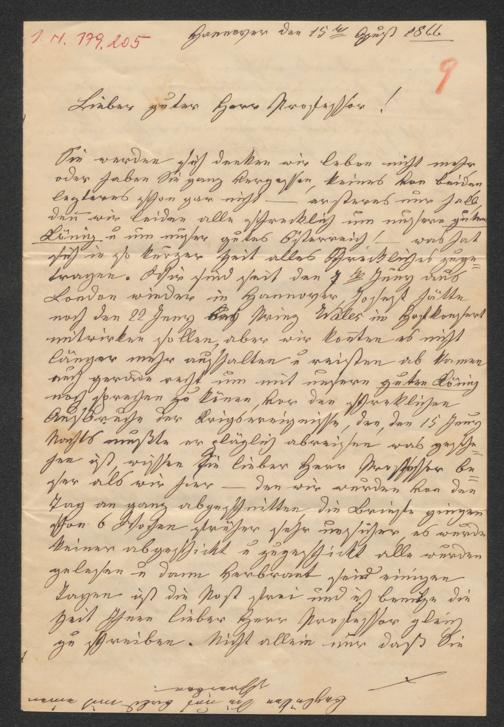 I. N. 179.205
Hannover den 15ten August 1866
9
Lieber guter Herr Professor!
Sie werden sich denken wir leben nicht mehr
oder haben Sie ganz vergessen, keines von beiden
letzteres schon gar nicht — ersteres nur halb
den wir leiden alle schrecklich um unsern guten
König u um unser gutes Österreich! — was hat
sich in so kurzer Zeit alles Schreckliches zuge-
tragen. Wir sind seit den 7ten Juny aus
London wieder in Hannover, Josef hätte
noch den 22 Juny bey Prinz Wales in Hofkonzert
mitwirken sollen, aber wir konten es nicht
länger mehr aushalten u reisten ab kamen
auch gerade recht um mit unsern guten König
noch sprechen zu könen vor den schreklichen
Ausbruche der Krigsereignisse, den den 15 Juny
Nachts mußte er plözlich abreisen was gesche-
hen ist, wissen Sie lieber Herr Professor be-
ser als wir hier — den wir wurden von den
Tag an ganz abgeschnitten die Briefe gingen
schon 6 Wochen früher sehr unsicher, es wurde
keiner abgeschickt u zugeschickt alle wurden
gelesen u dann verbrant seid einigen
Tagen ist die Post frei und ich benütze die
Zeit Ihnen lieber Herr Professor gleich
zu schreiben. Nicht allein nur daß Sie